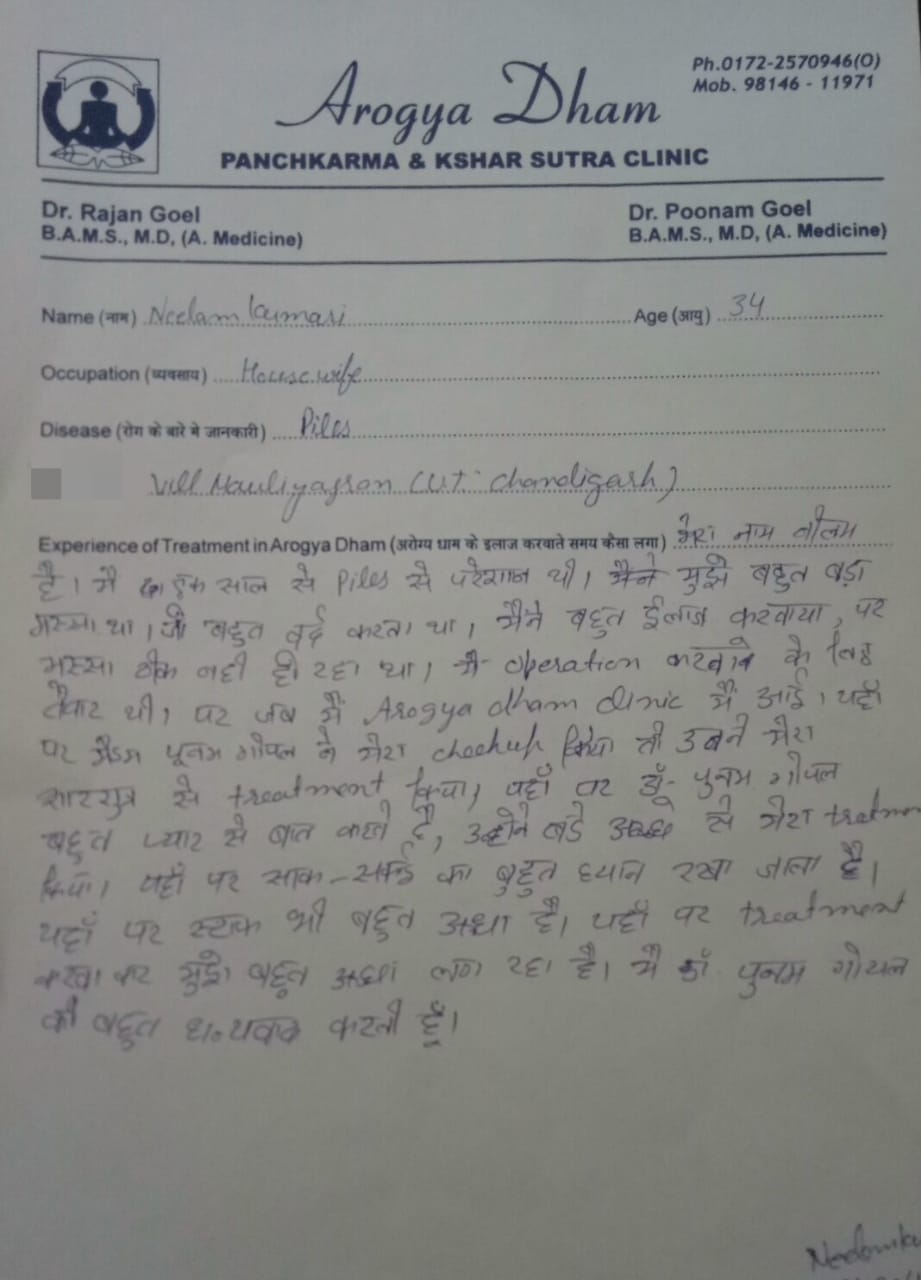 Ph.0172-2570946(O)
Mob. 98146 - 11971
Arogya Dham
PANCHKARMA & KSHAR SUTRA CLINIC
Dr. Rajan Goel
B.A.M.S., M.D, (A. Medicine)
Dr. Poonam Goel
B.A.M.S., M.D, (A. Medicine)
Name (नाम) Neelam Kumari Age (आयु) 34
Occupation (व्यवसाय) Housewife
Disease (रोग के बारे मे जानकारी) Piles
Vill Mauliyagran (U.T. Chandigarh)
Experience of Treatment in Arogya Dham (अरोग्य धाम के इलाज करवाते समय कैसा लगा) मेरा नाम नीलम
है। मै एक साल से Piles से परेशान थी। मैने मुझे बहुत बड़ा
मस्सा था। जो बहुत दर्द करता था। मैने बहुत ईलाज करवाया, पर
मस्सा ठीक नही हो रहा था। मै operation करवाने के लिए
तैयार थी। पर जब मैं Arogya dham clinic मैं आई। यहाँ
पर मैडम पूनम गोयल ने मेरा checkup किया तो उसने मेरा
से treatment किया। यहाँ पर डॉ- पुनम गोयल
बहुत प्यार से बात करते है, उन्होने बडे से मेरा
किया। यहाँ पर साफ-सफाई का बुहुत ध्यान रखा जाता है।
यहाँ पर स्टाफ भी बहुत अच्छा है। यहाँ पर treatment
करवा कर मुझे बहुत अच्छा लग रहा है। मै डॉ पुनम गोयल
की बहुत धन्यवाद करती हूँ।